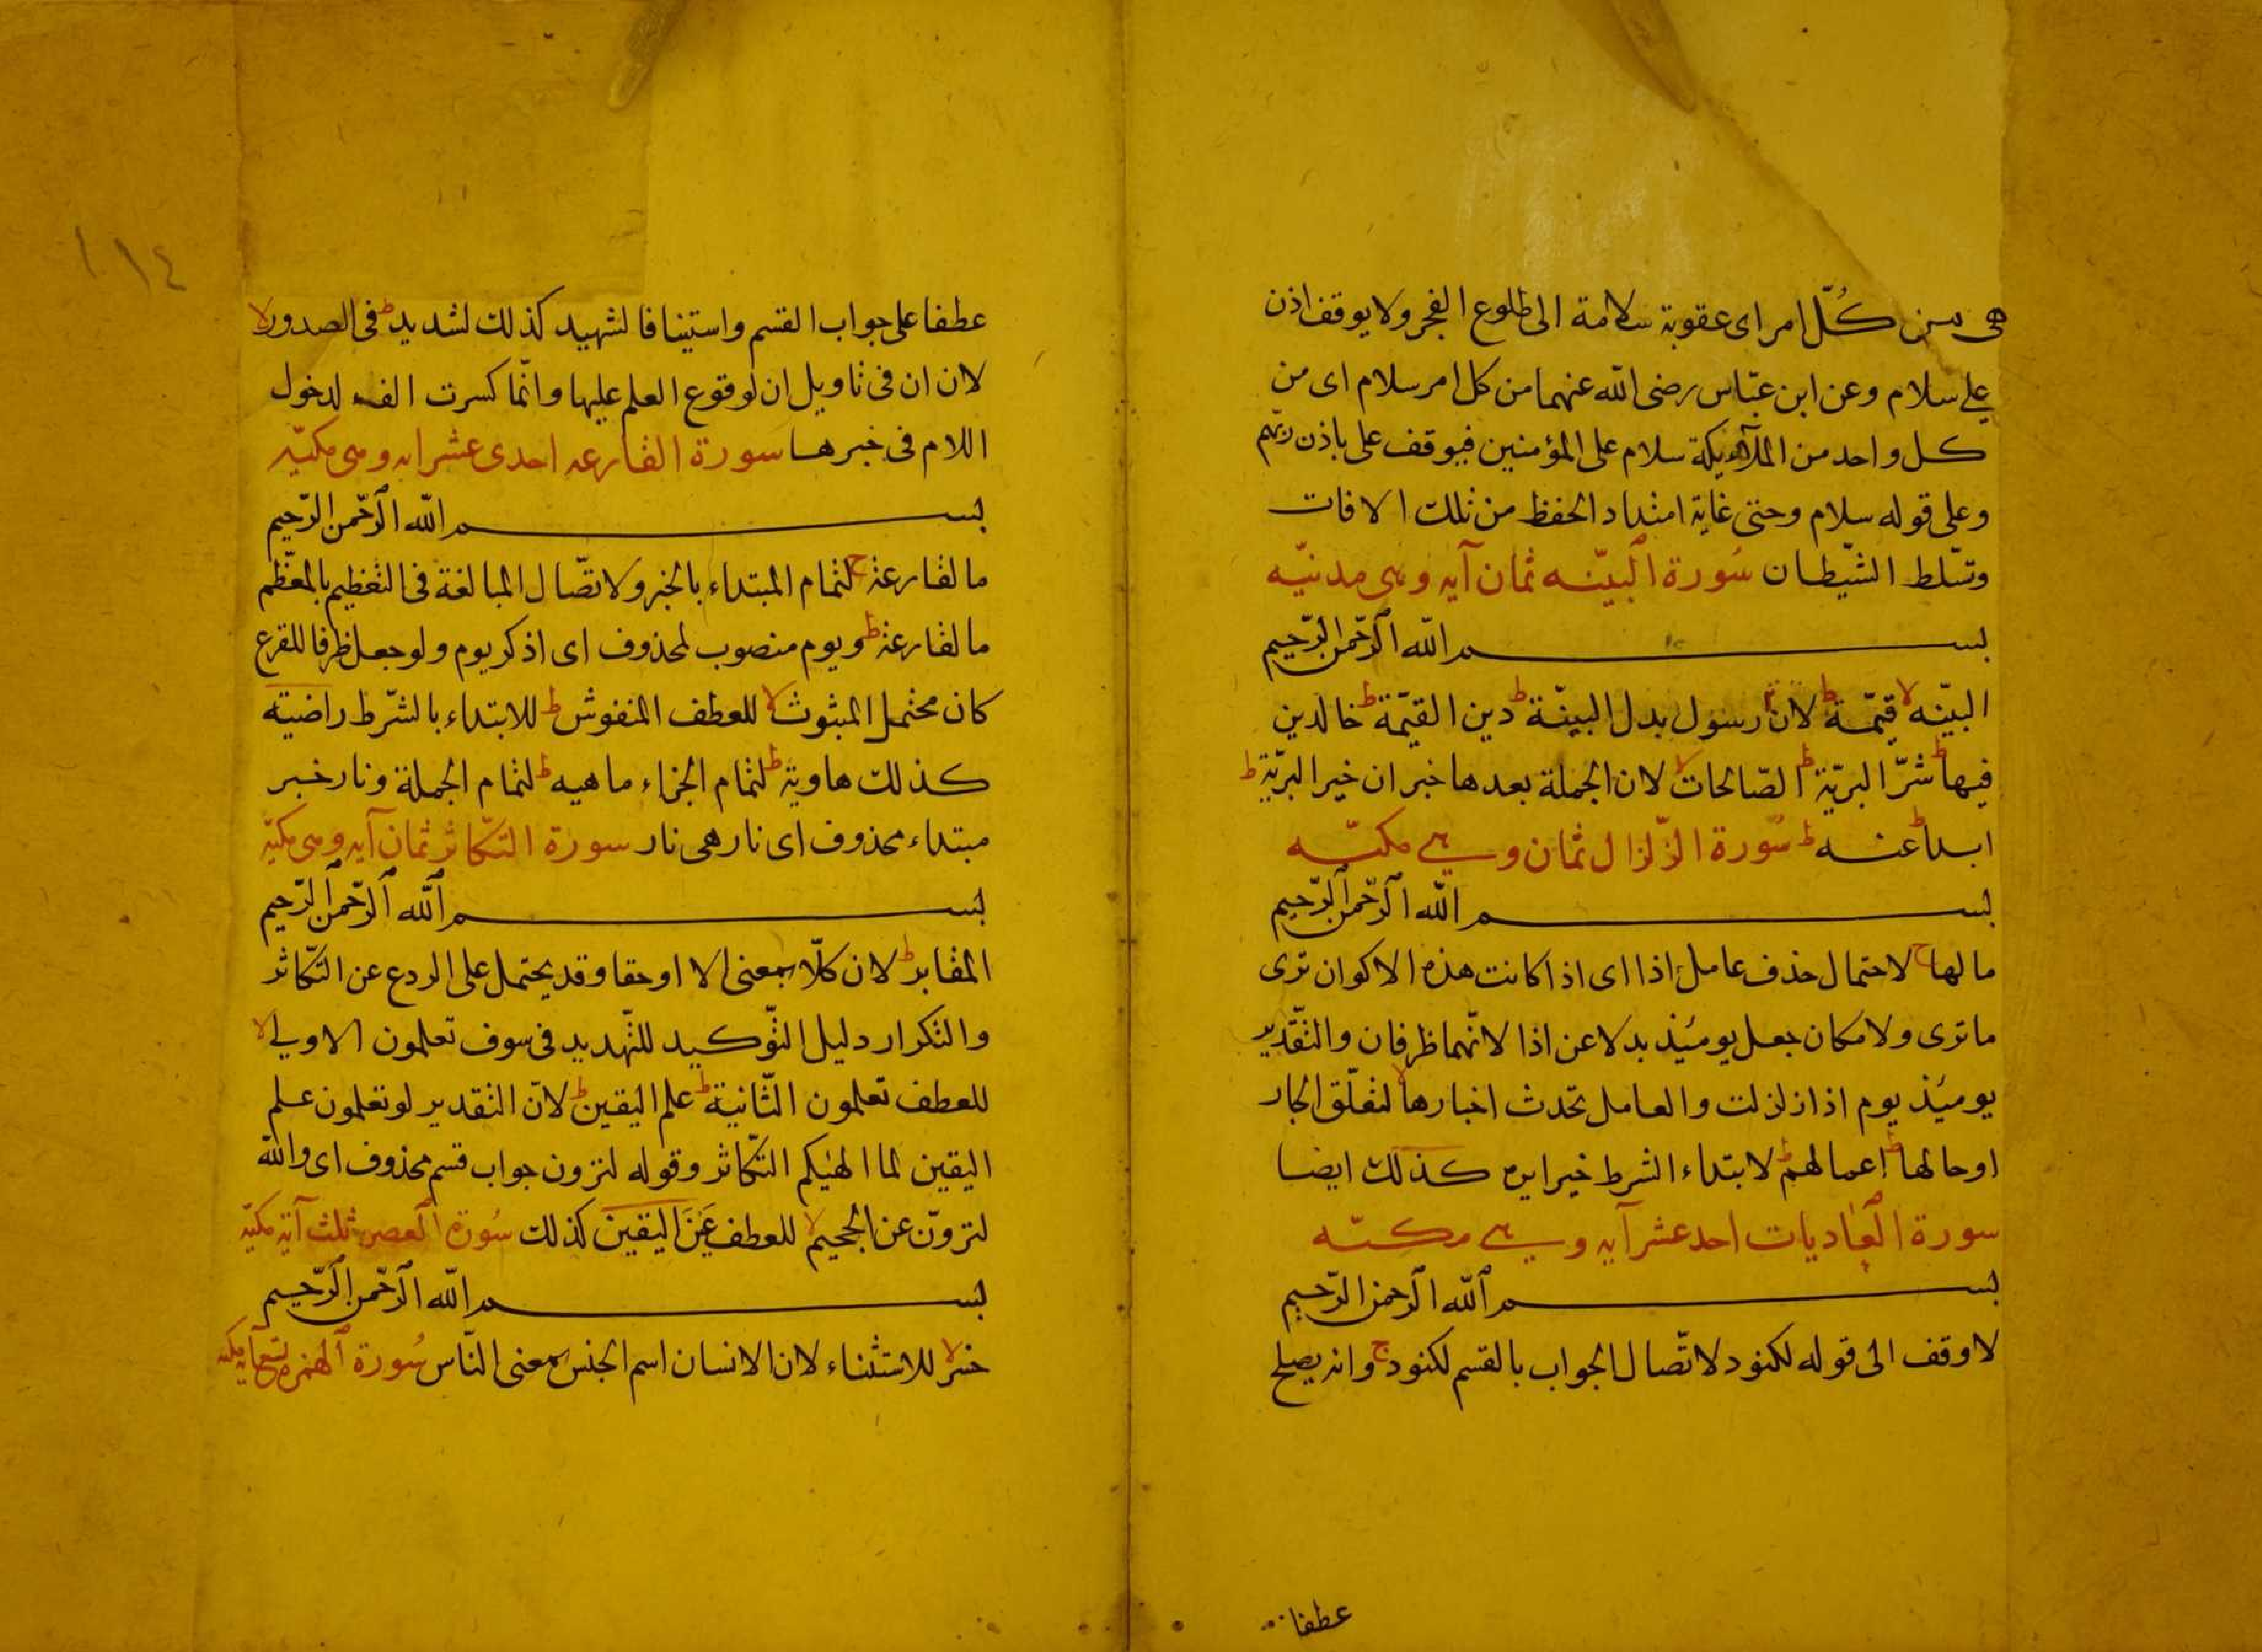 هى من كُلّ امر اى عقوبة سلامة الى طلوع الفجر ولا يوقف اذن
على سلام وعن ابن عبّاس رضى الله عنهما من كل امر سلام اى من
كل واحد من الملآئكة سلام على المؤمنين فيوقف على باذن ربّهم
وعلى قوله سلام وحتى غاية امتداد الحفظ من تلك الافات
وتسّلط الشّيطان سُورة البيّنه ثمان آيه وهى مدنيّه
بسم الله الرّحمن الرّحيم
البيّنه لا قيّمة ط لان رسول بدل البيّنة ط دين القيّمة ط خالدين
فيها ط شرّ البريّة ط الصّالحات لا لان الجملة بعدها خبر ان خير البريّة ط
ابدا ط عنه ط سُورة الزّلزال ثمان وهى مكيّه
بسم الله الرّحمن الرّحيم
مالها ج لاحتمال حذف عامل اذا اى اذا كانت هذه الاكوان ترى
ما ترى ولامكان جعل يومئذ بدلا عن اذا لانّهما ظرفان والتّقدير
يومئذ يوم اذا زلزلت والعامل تحدث اخبارها لا لتعلّق الجار
اوحالها ط اعمالهم ط لابتداء الشرط خيرا يره كذلك ايضا
سورة العاديات احد عشر آيه وهى مكيّه
بسم الله الرحمن الرّحيم
لا وقف الى قوله لكنود لاتّصال الجواب بالقسم لكنود ج وانه يصلح
عطفا
١١٤
عطفا على جواب القسم واستينافا لشهيد كذلك لشديد ط فى الصدور لا
لان ان فى تاويل ان لوقوع العلم عليها وانّما كسرت الفه لدخول
اللام فى خبرها سورة القارعه احدى عشر ايه وهى مكيّه
بسم الله الرّحمن الرّحيم
ما لقارعة ج لتمام المبتداء بالخبر ولاتصّال المبالغة فى التعظيم بالمعظّم
ما لقارعة ط ويوم منصوب لمحذوف اى اذكر يوم ولو جعل ظرفا للقرع
كان محتمل المبثوث لا للعطف المنفوش ط للابتداء بالشّرط راضية
كذلك هاوية ط لتمام الجزاء ماهيه ط لتمام الجملة ونار خبر
مبتداء محذوف اى نار هى نار سورة التكّاثر ثمان آيه وهى مكيّه
بسم الله الرّحمن الرّحيم
المقابر ط لان كلّا بمعنى الا او حقا وقد يحتمل على الردع عن التكّاثر
والتكرار دليل التّوكيد للتّهديد فى سوف تعلمون الاولى لا
للعطف تعلمون الثّانية ط علم اليقين ط لانّ التقدير لو تعلمون علم
اليقين لما الهٰيكم التّكاثر وقوله لترون جواب قسم محذوف اى والله
لتروّن عن الجحيم لا للعطف عَيْنَ اليقين كذلك سُورة العصر ثلث آية مكيّه
بسم الله الرّحمن الرّحيم
خسر لا للاستثناء لان الانسان اسم الجنس بمعنى النّاس سُورة الهمزه تسع آيه مكيه